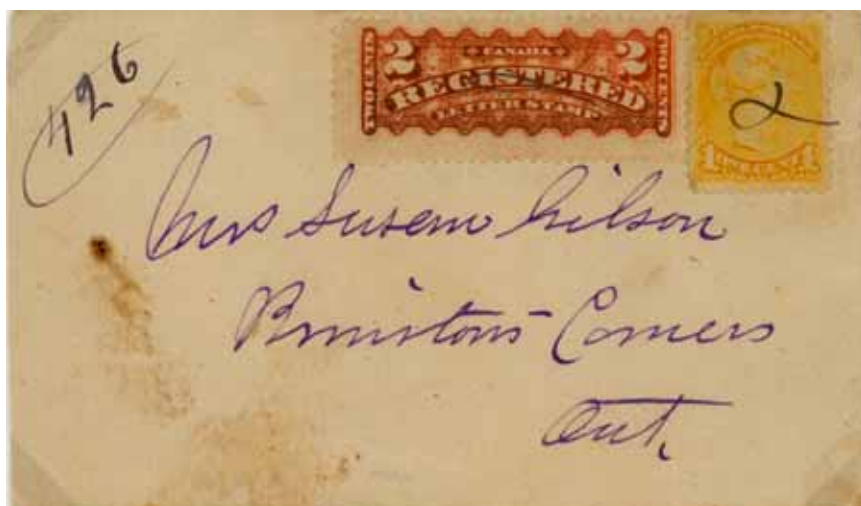 426
2 CANADA 2
TWO CENTS REGISTERED TWO CENTS
LETTER STAMP
1 ONE CENT 1
Mrs Susan Gilson
Brinstons Corners
Ont.